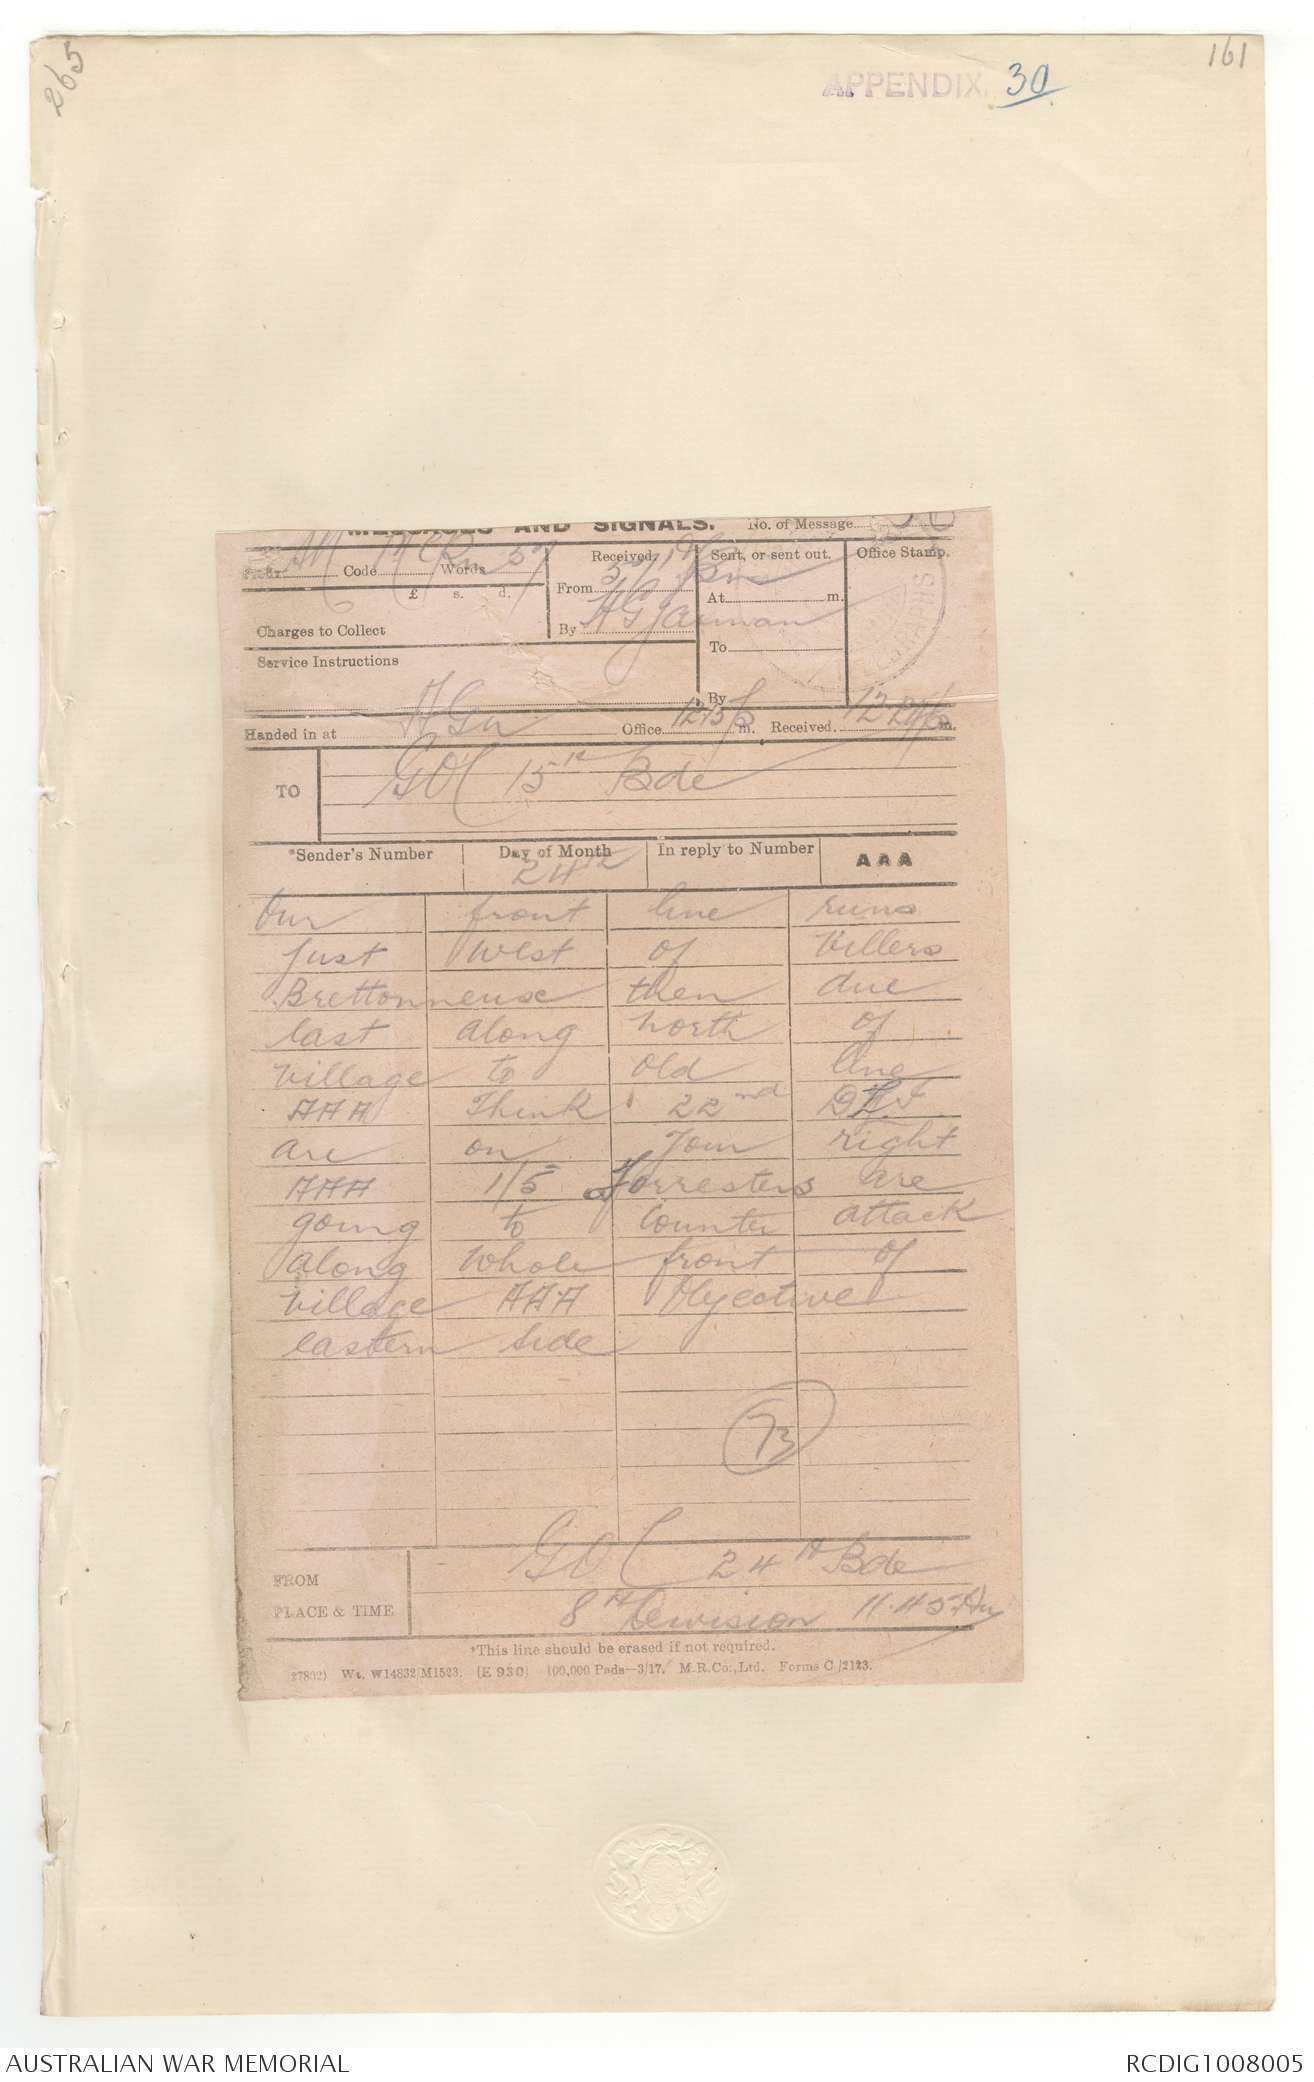 265
161
APPENDIX. 30
MESSAGES AND SIGNALS. No. of Message
Prefix Code Words 57 Received Sent, or sent out. Office Stamp.
£ s. d. From At m.
Charges to Collect By To
Service Instructions By
Handed in at Office 1215 p m. Received. m.
TO GOC 15th Bde
*Sender's Number Day of Month In reply to Number AAA
24th
Our front line runs
just west of Villers
Brettonneuse then due
east along north of
village to old line
AAA Think 22nd
are on your right
AAA 1/5 Forresters are
going to counter attack
along whole front of
village AAA Objective
eastern side
73
FROM GOC 24th Bde
PLACE & TIME 8th Devision 11.45
*This line should be erased if not required.
27802) Wt. W14832/M1523. (E 930) 100,000 Pads—3/17. M.R.Co.,Ltd. Forms C/2123.
AUSTRALIAN WAR MEMORIAL RCDIG1008005